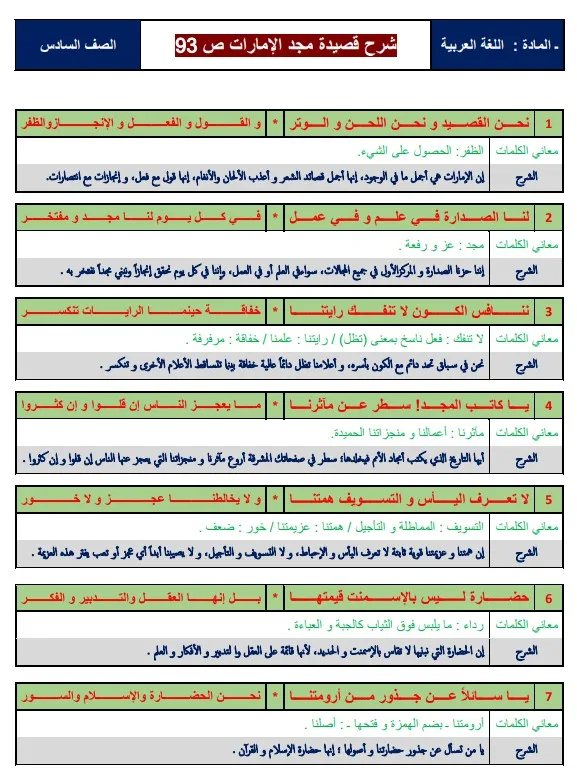 ـ المادة : اللغة العربية
شرح قصيدة مجد الإمارات ص 93
الصف السادس
1 نحن القصيد و نحن اللحن و الوتر * و القول و الفعل و الإنجاز والظفر
معاني الكلمات الظفر: الحصول على الشيء.
الشرح إن الإمارات هي أجمل ما في الوجود، إنها أجمل قصائد الشعر و أعذب الألحان والأنغام، إنها قول مع فعل، و إنجازات مع انتصارات.
2 لنا الصدارة في علم و في عمل * في كل يوم لنا مجد و مفتخر
معاني الكلمات مجد : عز و رفعة .
الشرح إننا حزنا الصدارة و المركز الأول في جميع المجالات، سواء في العلم أو في العمل، وإننا في كل يوم نحقق إنجازاً ونبني مجداً نفتخر به .
3 ننافس الكون لا تنفك رايتنا * خفاقة حينما الرايات تنكسر
معاني الكلمات لا تنفك : فعل ناسخ بمعنى (تظل) / رايتنا : علمنا / خفاقة : مرفرفة .
الشرح نحن في سباق تحد دائم مع الكون بأسره، و أعلامنا تظل دائماً عالية خفاقة بينما تتساقط الأعلام الأخرى و تنكسر .
4 يا كاتب المجد! سطر عن مآثرنا * ما يعجز الناس إن قلوا و إن كثروا
معاني الكلمات مآثرنا : أعمالنا و منجزاتنا الحميدة.
الشرح أيها التاريخ الذي يكتب أمجاد الأمم فيخلدها؛ سطر في صفحاتك المشرقة أروع مآثرنا و منجزاتنا التي يعجز عنها الناس إن قلوا و إن كثروا .
5 لا تعرف اليأس و التسويف همتنا * و لا يخالطنا عجز و لا خور
معاني الكلمات التسويف : المماطلة و التأجيل / همتنا : عزيمتنا / خور : ضعف .
الشرح إن همتنا و عزيمتنا قوية ثابتة لا تعرف اليأس و الإحباط، و لا التسويف و التأجيل، و لا يصيبنا أبداً أي عجز أو تعب يفتر هذه العزيمة .
6 حضارة ليس بالإسمنت قيمتها * بل إنها العقل والتدبير و الفكر
معاني الكلمات رداء : ما يلبس فوق الثياب كالجبة و العباءة .
الشرح إن الحضارة التي نبنيها لا تقاس بالإسمنت و الحديد، لأنها قائمة على العقل وا لتدبير و الأفكار و العلم .
7 يا سائلاً عن جذور من أرومتنا * نحن الحضارة والإسلام والسور
معاني الكلمات أرومتنا ـ بضم الهمزة و فتحها ـ : أصلنا .
الشرح يا من تسأل عن جذور حضارتنا و أصولها ؛ إنها حضارة الإسلام و القرآن .